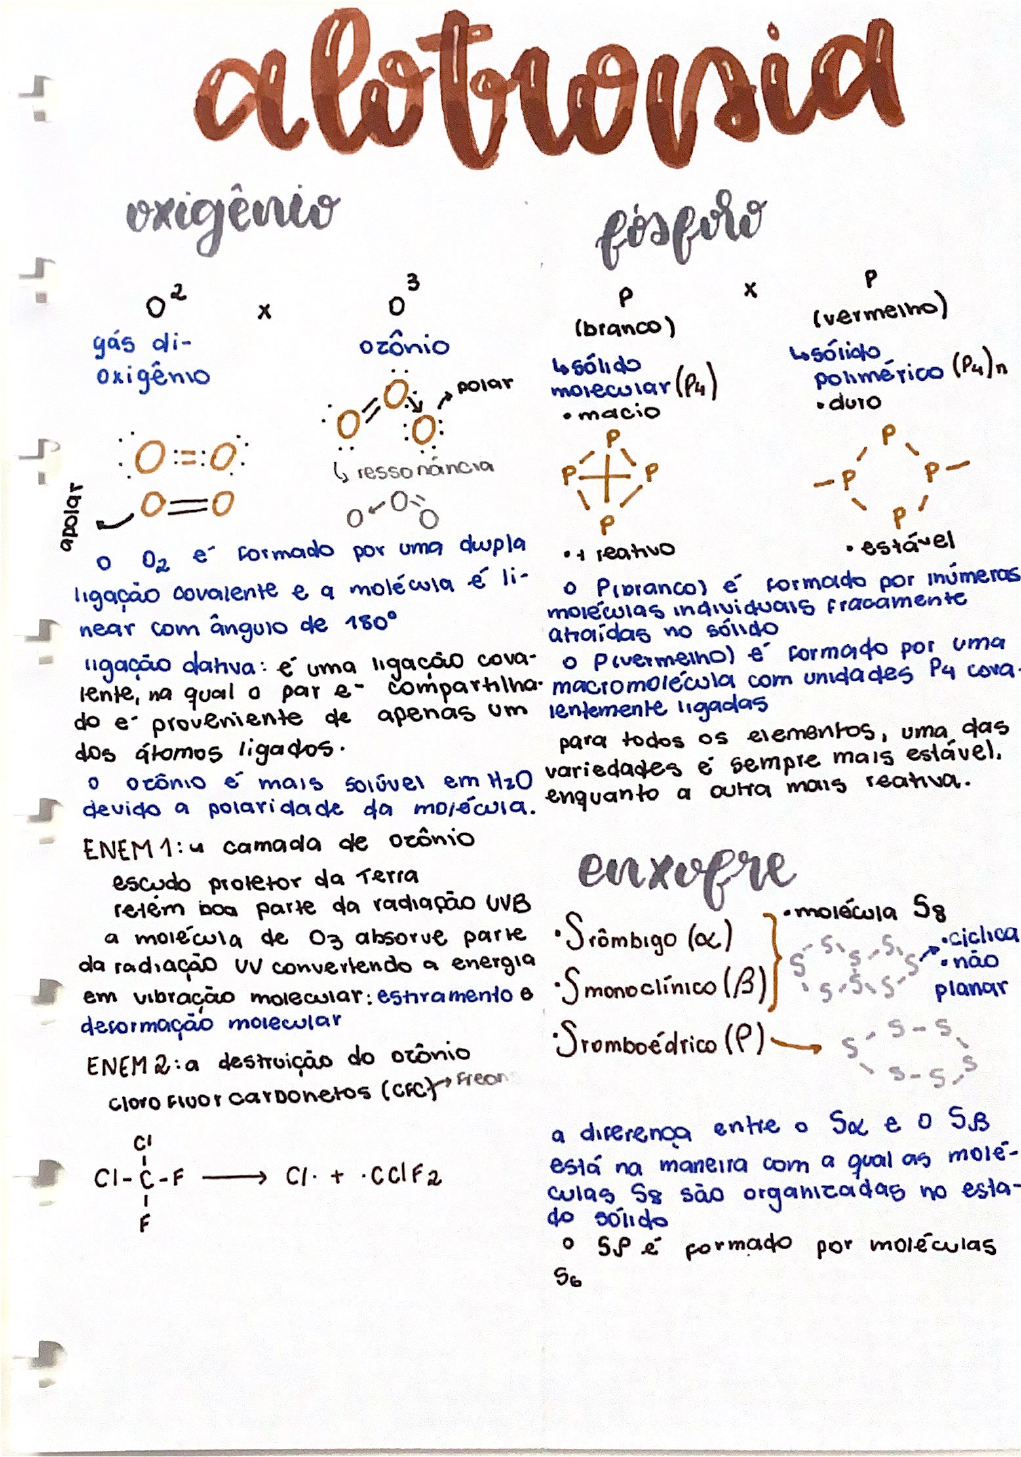 alotropia
oxigênio
O² x O³
gás di-
oxigênio
ozônio
O O O → polar
O = O
↳ ressonância
O O O
O = O
apolar
o O₂ é formado por uma dupla
ligação covalente e a molécula é li-
near com ângulo de 180°
ligação dativa: é uma ligação cova-
lente, na qual o par e- compartilha-
do é proveniente de apenas um
dos átomos ligados.
o ozônio é mais solúvel em H₂O
devido a polaridade da molécula.
ENEM 1: a camada de ozônio
escudo protetor da Terra
retém boa parte da radiação UVB
a molécula de O₃ absorve parte
da radiação UV convertendo a energia
em vibração molecular: estiramento e
deformação molecular
ENEM 2: a destruição do ozônio
cloro fluor carbonetos (CFC) → Freons
Cl
Cl-C-F → Cl· + ·CClF₂
F
fósforo
P x P
(branco) (vermelho)
↳ sólido
molecular (P₄)
• macio
↳ sólido
polimérico (P₄)n
• duro
P
P P
P
P
- P P -
P
• + reativo
• estável
o P(branco) é formado por inúmeras
moléculas individuais fracamente
atraídas no sólido
o P(vermelho) é formado por uma
macromolécula com unidades P₄ cova-
lentemente ligadas
para todos os elementos, uma das
variedades é sempre mais estável,
enquanto a outra mais reativa.
enxofre
• Srômbigo (α)
• Smonoclínico (β)
• Sromboédrico (ρ) →
• molécula S₈
S S S S S S S S
• cíclica
• não
planar
S S - S S S - S
a diferença entre o Sα e o Sβ
está na maneira com a qual as molé-
culas S₈ são organizadas no esta-
do sólido
o Sρ é formado por moléculas
S₆